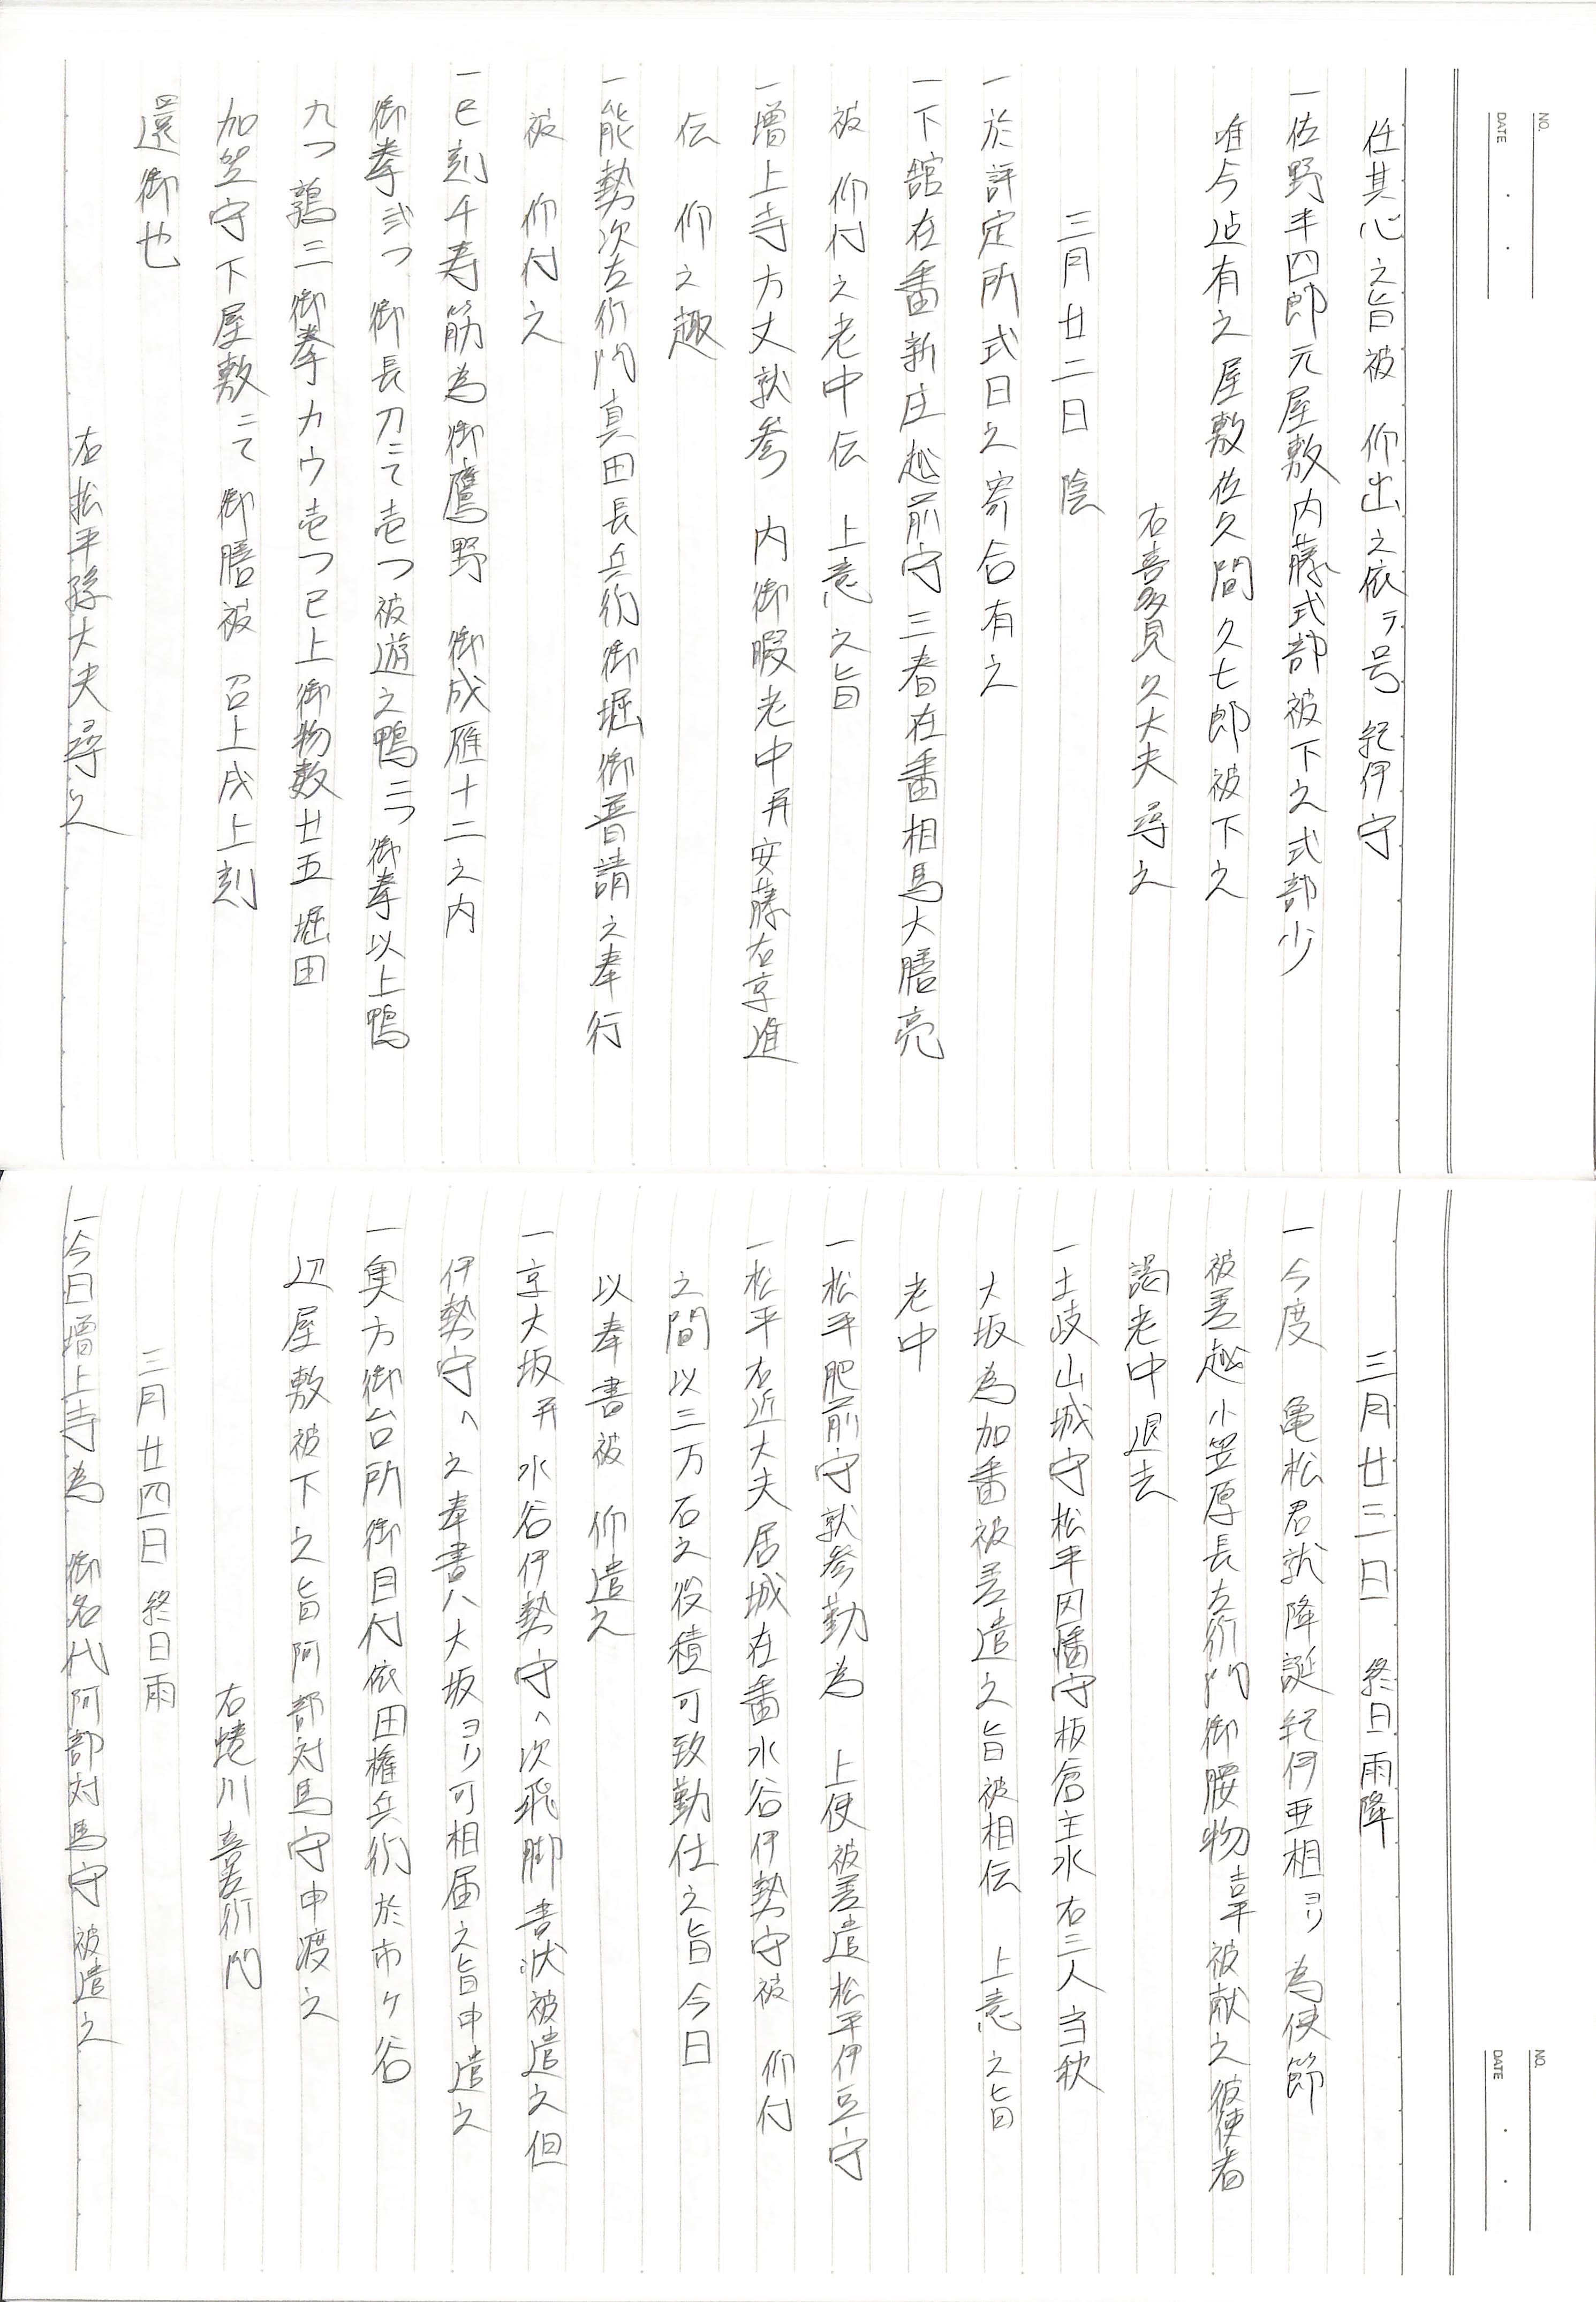 任其心之旨被　仰出之依テ号　紀伊守
一佐野半四郎元屋敷内藤式部被下之式部少
唯今迠有之屋敷佐久間久七郎被下之
右喜多見久大夫尋之
三月廿二日　陰
一於評定所式日之寄合有之
一下舘在番新庄越前守三春在番相馬大膳亮
被　仰付之老中伝　上意之旨
一増上寺方丈就参　内御暇老中并安藤右京進
伝　仰之趣
一能勢次左衛門真田長兵衛御堀御普請之奉行
被　仰付之
一巳刻千寿筋為御鷹野　御成雁十二之内
御拳弐つ　御長刀ニて壱つ被遊之鴨三つ御拳以上鴨
九つ鶉三御拳カウ壱つ已上御物数廿五　堀田
加賀守下屋敷ニて　御膳被　召上戌上刻
還御也
右松平孫大夫尋之
三月廿三日　終日雨降
一今度　亀松君就降誕紀伊亜相ヨリ　為使節
被差越小笠原長左衛門御腰物　幸　被献之彼使者
謁老中退去
一土岐山城守松平因幡守板倉主水右三人当秋
大坂為加番被差遣之旨被相伝　上意之旨
老中
一松平肥前守就参勤為　上使被差遣松平伊豆守
一松平右近大夫居城在番水谷伊勢守被　仰付
之間以三万石之役積可致勤仕之旨今日
以奉書被　仰遣之
一京大坂并水谷伊勢守ヘ次飛脚書状被遣之但
伊勢守ヘ之奉書ハ大坂ヨリ可相届之旨申遣之
一奥方御台所御目付依田権兵衛於市ケ谷
辺屋敷被下之旨阿部対馬守申渡之
右蜷川喜左衛門
三月廿四日　終日雨
一今日増上寺為　御名代阿部対馬守被遣之